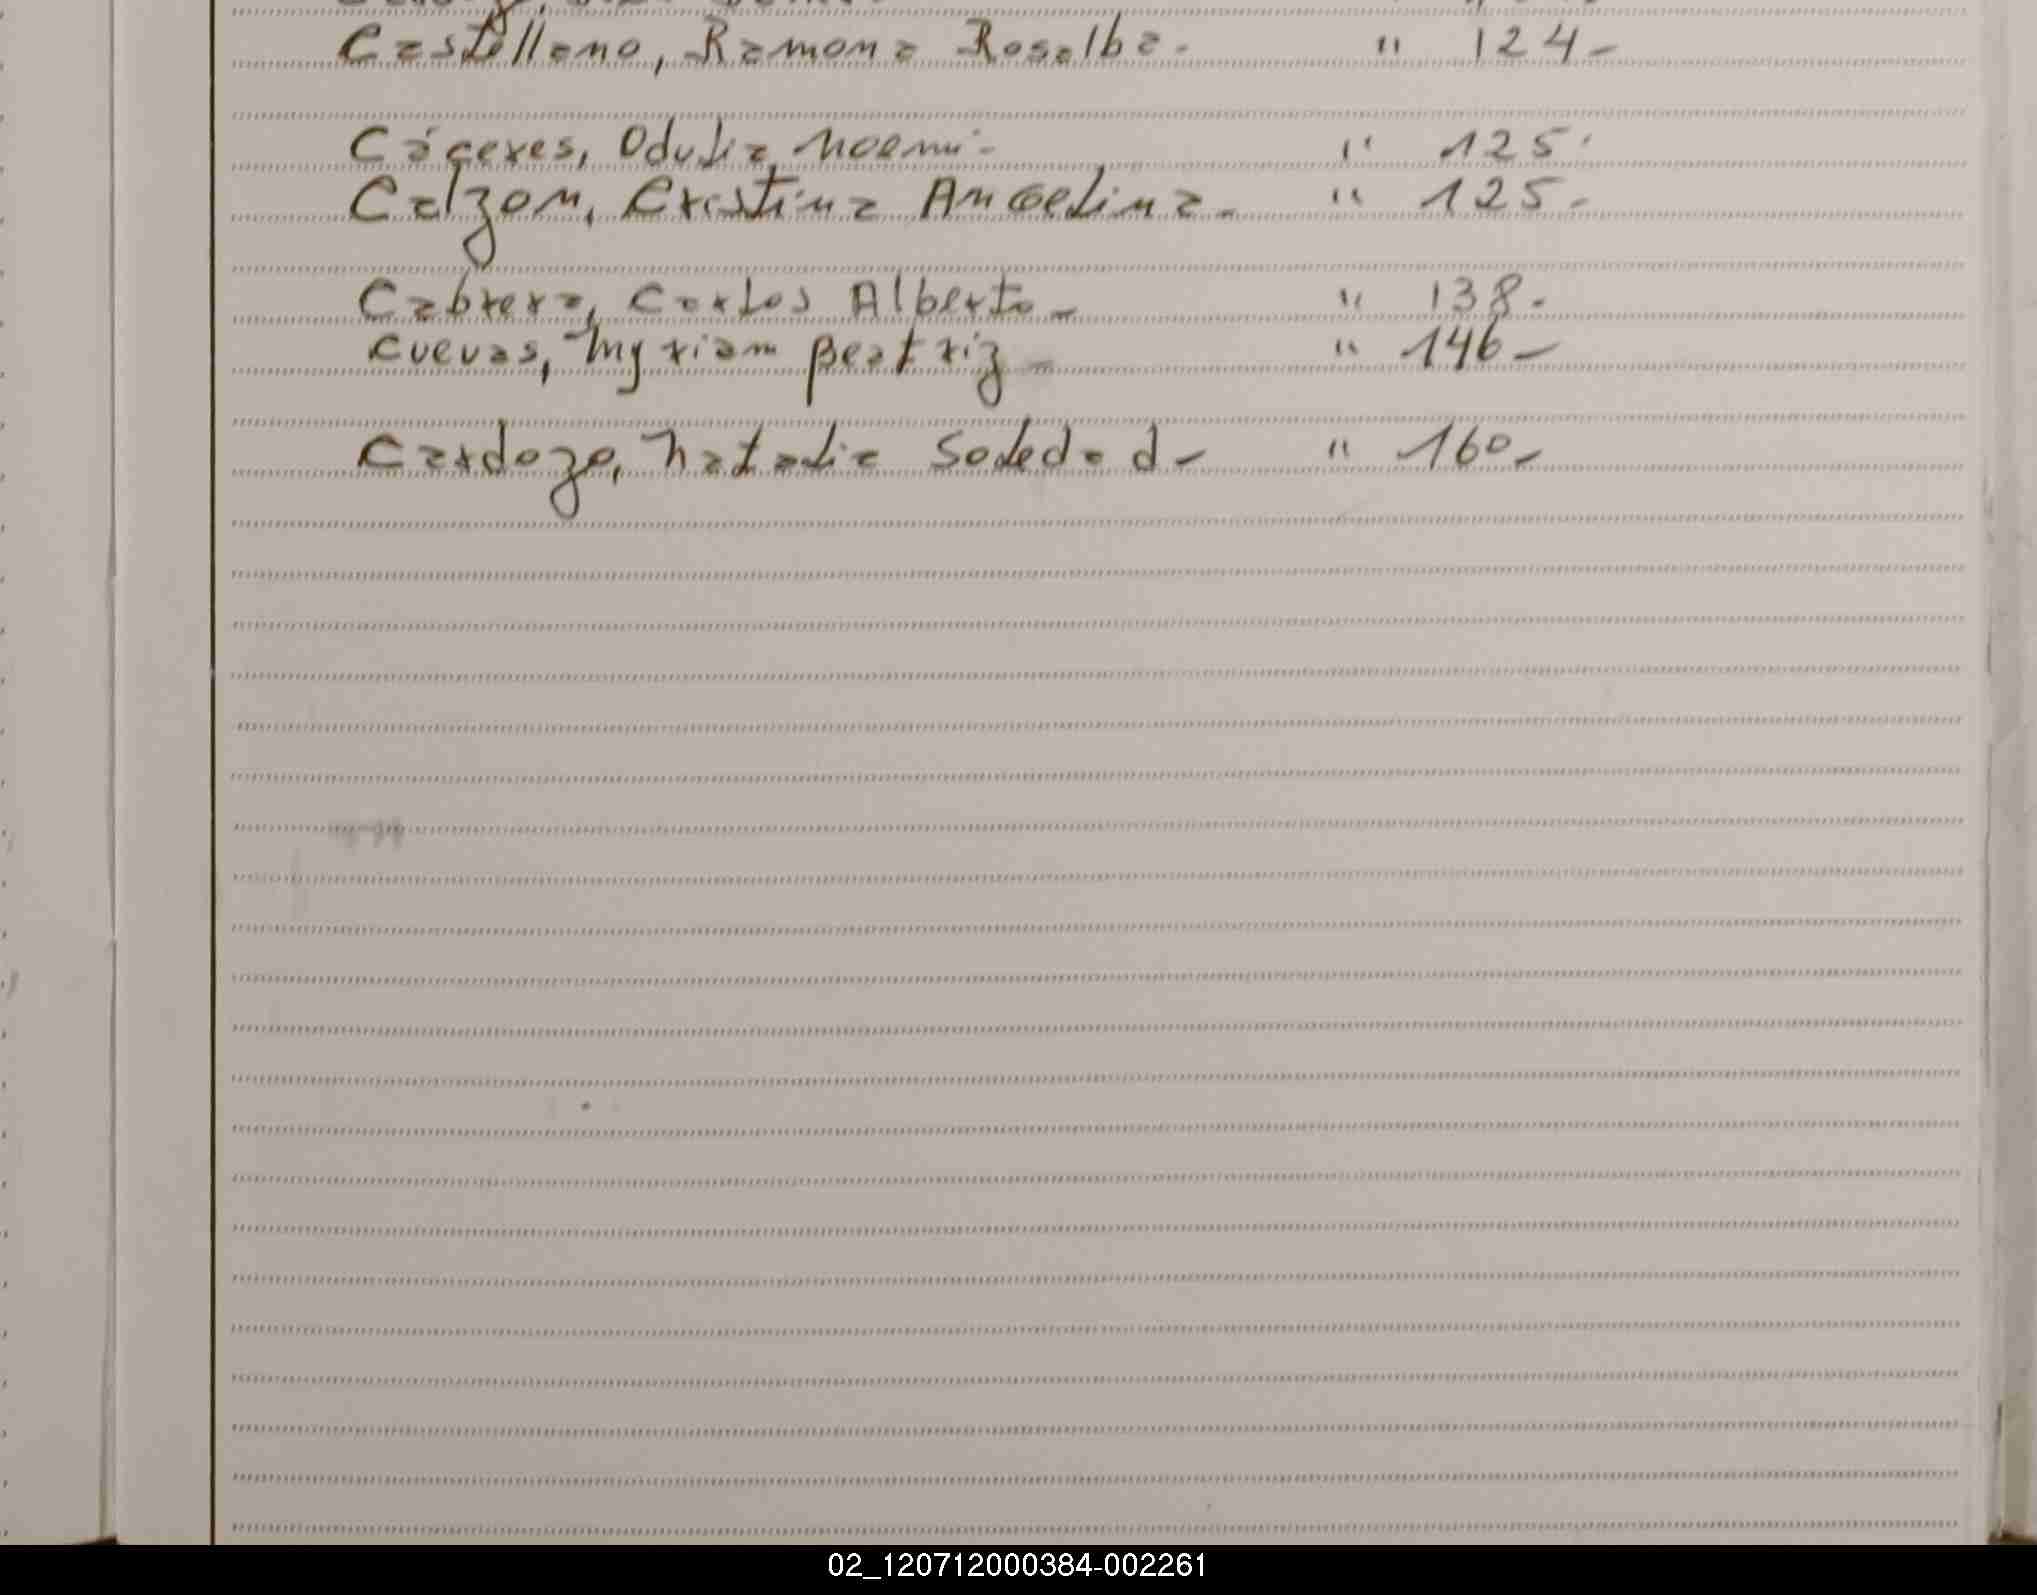 Castellano, Ramona Rosalba. " 124-
Cáceres, Odulia Noemi- " 125.
Calzon, Cristina Angelina. " 125.
Cabrera, Carlos Alberto- " 138.
Cuevas, Myriam Beatriz- " 146-
Cardozo, Natalia Soledad- " 160-
02_120712000384-002261